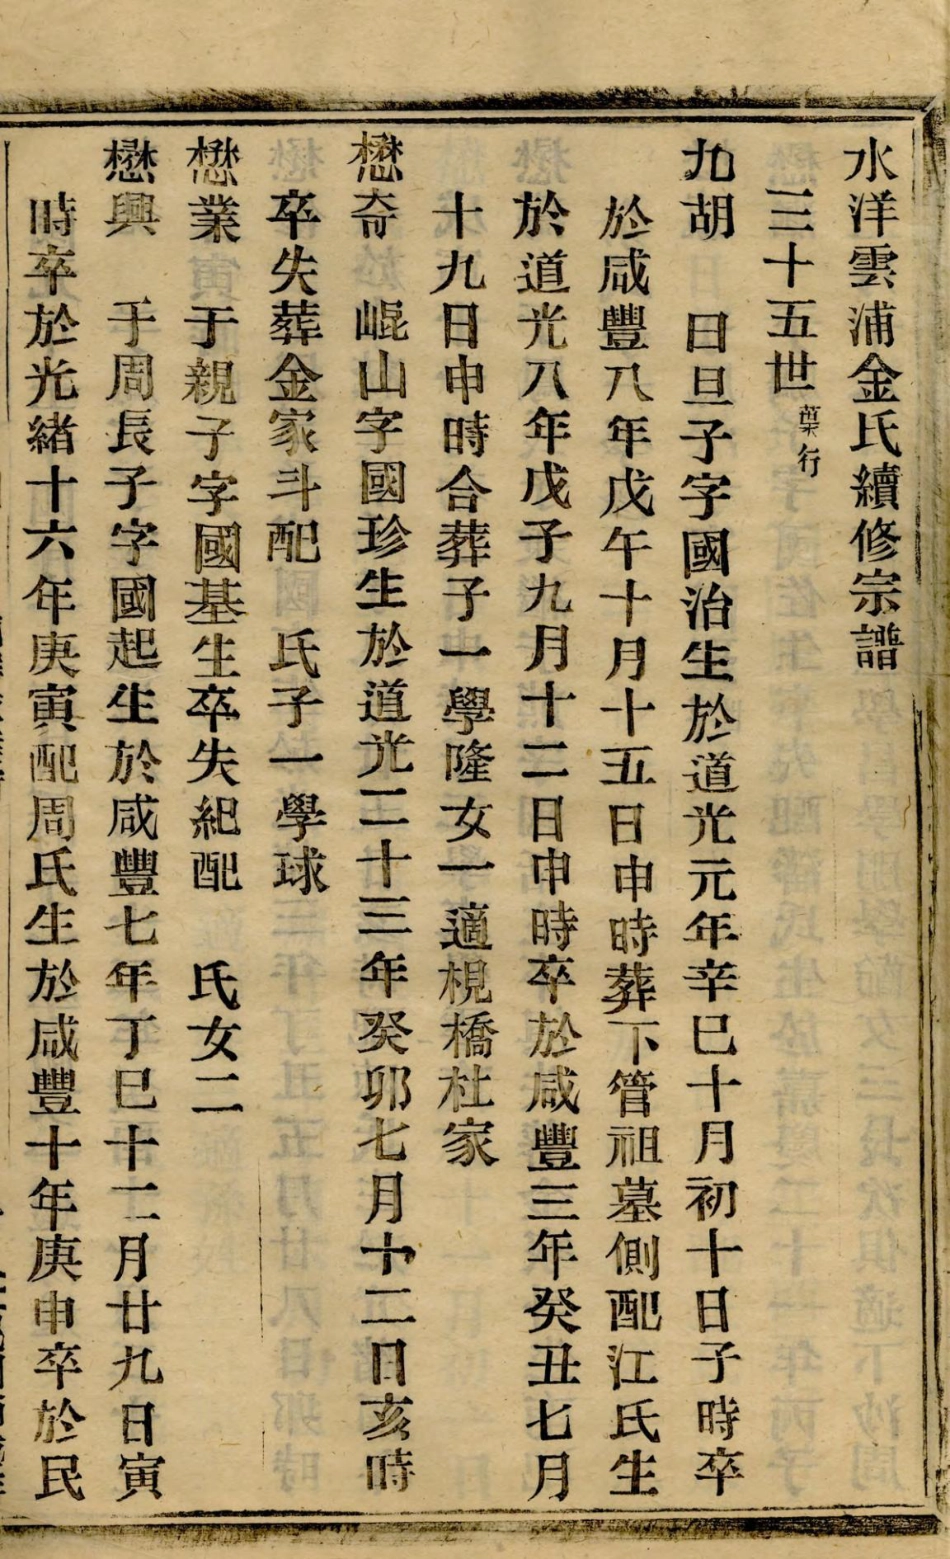 水洋雲浦金氏續修宗譜
三十五世 葉行
九胡 曰旦子字國治生於道光元年辛巳十月初十日子時卒
於咸豐八年戊午十月十五日申時葬下管祖墓側配江氏生
於道光八年戊子九月十二日申時卒於咸豐三年癸丑七月
十九日申時合葬子一學隆女一適梘橋杜家
懋奇 崐山字國珍生於道光二十三年癸卯七月十二日亥時
卒失葬金家斗配 氏子一學球
懋業 于親子字國基生卒失紀配 氏女二
懋興 于周長子字國起生於咸豐七年丁巳十二月廿九日寅
時卒於光緒十六年庚寅配周氏生於咸豐十年庚申卒於民